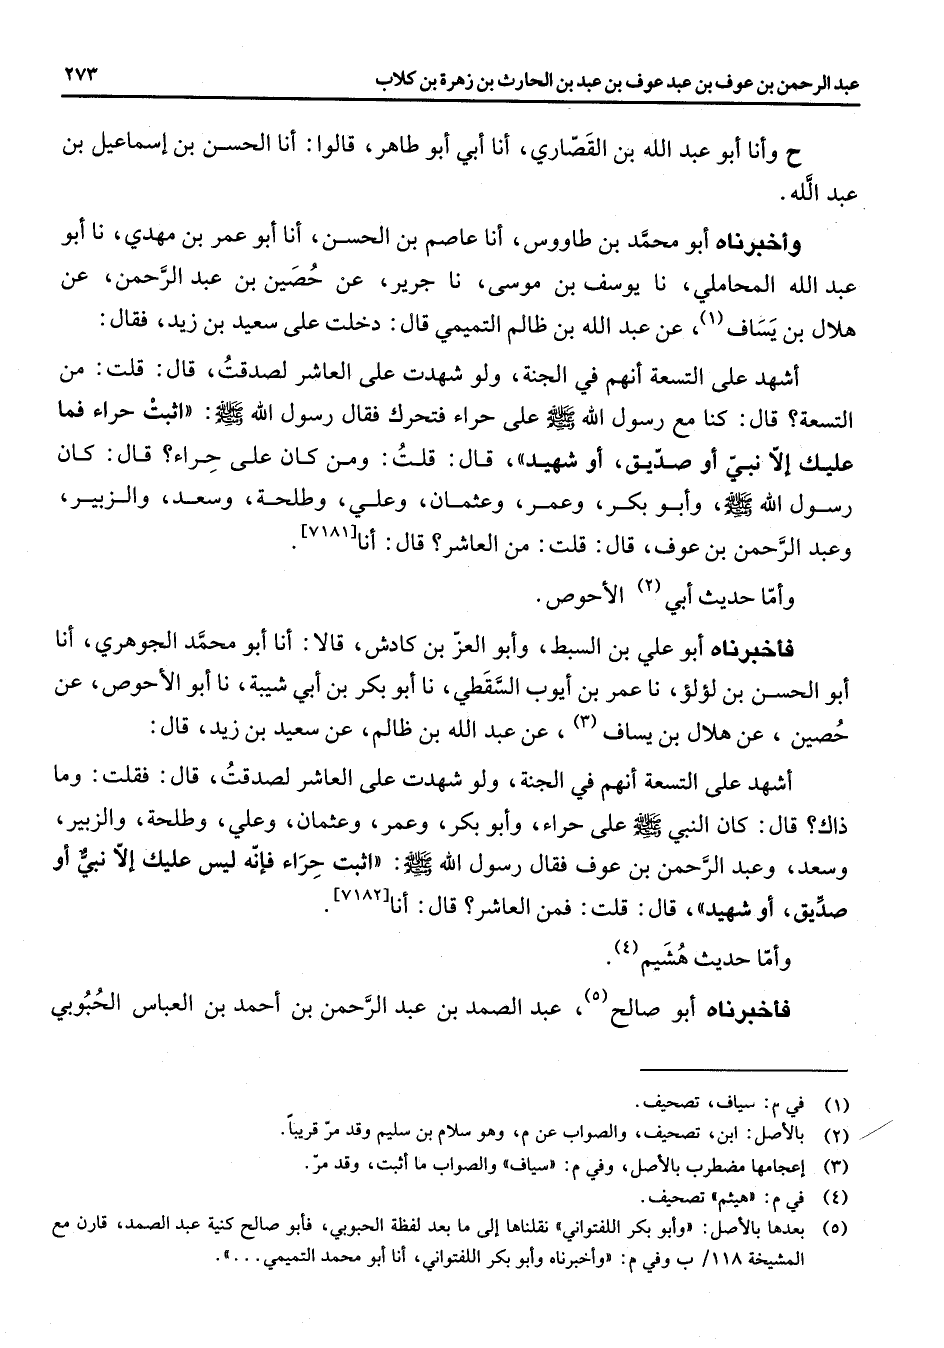 عبد الرحمن بن عوف بن عبد عوف بن عبد بن الحارث بن زهرة بن كلاب ٢٧٣
ح وأنا أبو عبد الله بن القَصّاري، أنا أبي أبو طاهر، قالوا: أنا الحسن بن إسماعيل بن
عبد اللَّه.
وأخبرناه أبو محمَّد بن طاووس، أنا عاصم بن الحسن، أنا أبو عمر بن مهدي، نا أبو
عبد الله المحاملي، نا يوسف بن موسى، نا جرير، عن حُصَين بن عبد الرَّحمن، عن
هلال بن يَسَاف(١)، عن عبد الله بن ظالم التميمي قال: دخلت على سعيد بن زيد، فقال:
أشهد على التسعة أنهم في الجنة، ولو شهدت على العاشر لصدقتُ، قال: قلت: من
التسعة؟ قال: كنا مع رسول الله ﷺ على حراء فتحرك فقال رسول الله ﷺ: «اثبتْ حراء فما
عليك إلاّ نبيّ أو صدّيق، أو شهيد»، قال: قلتُ: ومن كان على حِراء؟ قال: كان
رسول الله ﷺ، وأبو بكر، وعمر، وعثمان، وعلي، وطلحة، وسعد، والزبير،
وعبد الرَّحمن بن عوف، قال: قلت: من العاشر؟ قال: أنا[٧١٨١].
وأمّا حديث أبي(٢) الأحوص.
فأخبرناه أبو علي بن السبط، وأبو العزّ بن كادش، قالا: أنا أبو محمَّد الجوهري، أنا
أبو الحسن بن لؤلؤ، نا عمر بن أيوب السَّقَطي، نا أبو بكر بن أبي شيبة، نا أبو الأحوص، عن
حُصين ، عن هلال بن يساف(٣) ، عن عبد الله بن ظالم، عن سعيد بن زيد، قال:
أشهد على التسعة أنهم في الجنة، ولو شهدت على العاشر لصدقتُ، قال: فقلت: وما
ذاك؟ قال: كان النبي ﷺ على حراء، وأبو بكر، وعمر، وعثمان، وعلي، وطلحة، والزبير،
وسعد، وعبد الرَّحمن بن عوف فقال رسول الله ﷺ: «اثبت حِرَاء فإنّه ليس عليك إلاّ نبيٌّ أو
صدِّيق، أو شهيد»، قال: قلت: فمن العاشر؟ قال: أنا[٧١٨٢].
وأمّا حديث هُشَيم(٤).
فأخبرناه أبو صالح(٥)، عبد الصمد بن عبد الرَّحمن بن أحمد بن العباس الحُبُوبي
(١) في م: سياف، تصحيف.
(٢) بالأصل: ابن، تصحيف، والصواب عن م، وهو سلام بن سليم وقد مرّ قريباً.
(٣) إعجامها مضطرب بالأصل، وفي م: «سياف» والصواب ما أثبت، وقد مرّ.
(٤) في م: «هيثم» تصحيف.
(٥) بعدها بالأصل: «وأبو بكر اللفتواني» نقلناها إلى ما بعد لفظة الحبوبي، فأبو صالح كنية عبد الصمد، قارن مع
المشيخة ١١٨/ ب وفي م: «وأخبرناه وأبو بكر اللفتواني، أنا أبو محمد التميمي...».